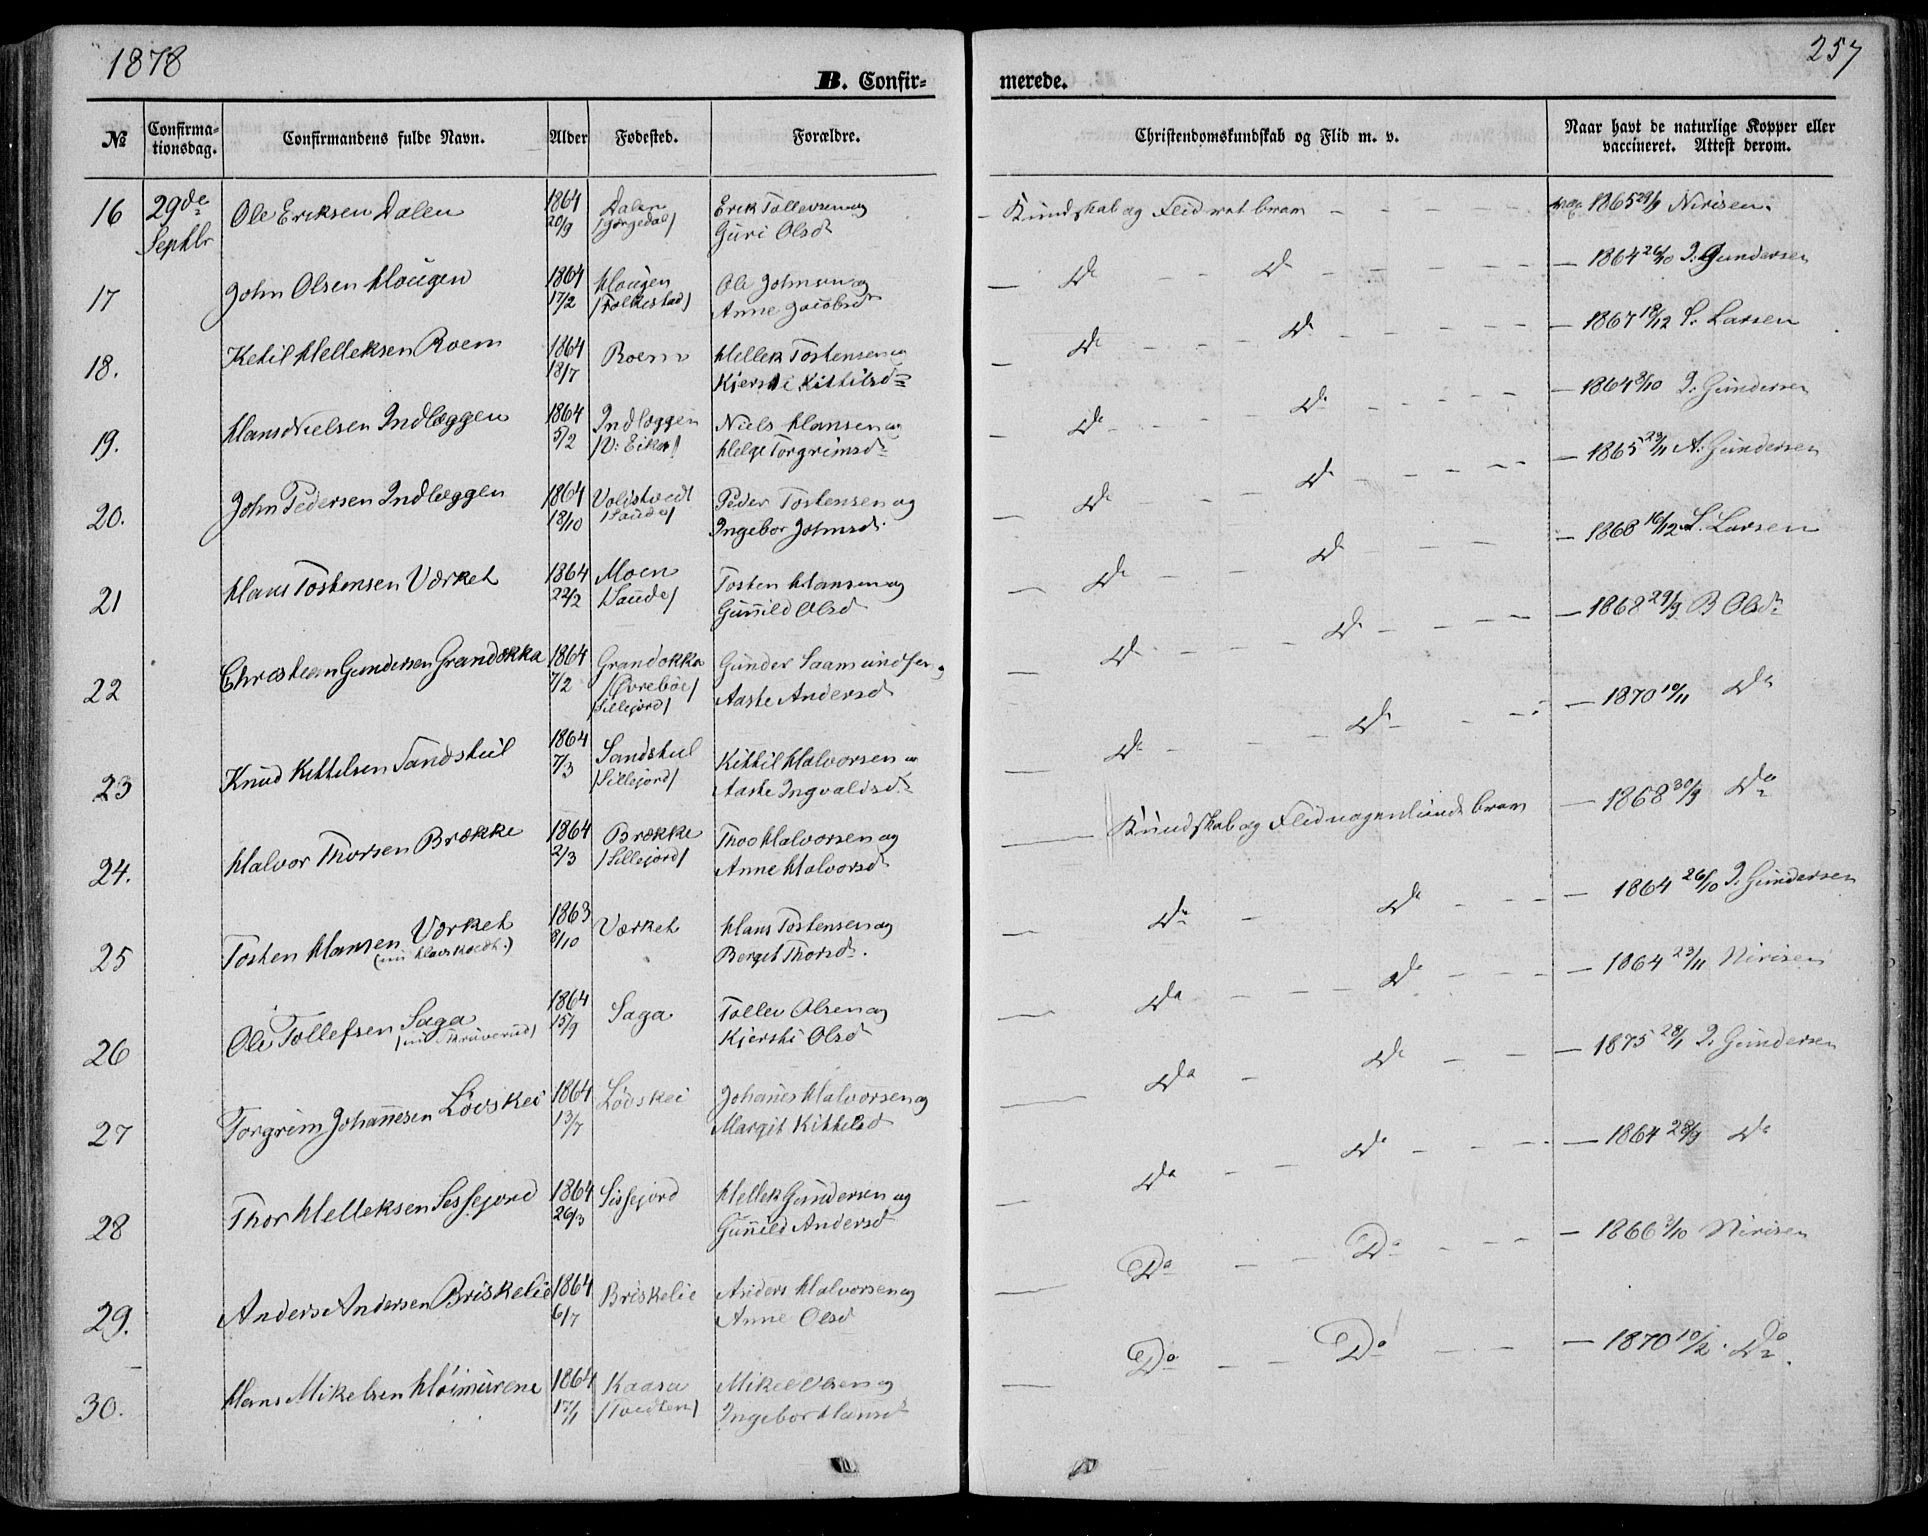 1878
257
B. Confir-
merede.
№ Confirma-tionsdag. Confirmandens fulde Navn. Alder Fødested. Forældre. Christendomskundskab og Flid m. v. Naar havt de naturlige Kopper eller vaccineret. Attest derom.
16 29de Septbr Ole Eriksen Dalen 1864 20/9 Dalen /Hjergedal/ Erik Tollevsen og Guri Olsd Kundskab og Flid ret bram 1865 29/9 Nirisen.
17 John Olsen Haugen 1864 17/2 Haugen /Folkestad/ Ole Johnsen og Anne Jacobsd Do Do 1864 26/10 J. Gundersen
18. Ketil Helleksen Roem 1864 18/7 Roem Hellek Tostensen og Kjersti Kittilsd Do Do 1867 18/12 S. Larsen
19. Hans Nielsen Indlæggen 1864 5/2 Indlæggen /V: Eika/ Niels Hansen og Helge Torgrimsd Do Do 1864 3/10 J. Gundersen
20. John Pedersen Indlæggen 1864 18/10 Volistvedt /Saude/ Peder Tostensen og Ingebor Johnsd. Do Do 1865 29/11 A. Gundersen
21 Hans Tostensen Værket 1864 22/2 Moen /Saude/ Tosten Hansen og Gunild Olsd Do Do 1868 16/12 S. Larsen
22 Christian Gundersen Grandokka 1864 7/2 Grandokka /Øvrebøe/ /Sillejord/ Gunder Saamundsen og Aaste Andersd Do Do 1868 29/9 B Olsd
23 Knud Kittelsen Sandskul 1864 7/3 Sandskul /Sillejord/ Kittil Halvorsen og Aaste Ingvaldsd Do Do 1870 10/11 Do
24. Halvor Thorsen Brække 1864 2/3 Brække /Sillejord/ Thor Halvorsen og Anne Halvorsd Kundskab og Flid nogenlunde bram 1868 30/9 Do
25 Tosten Hansen Værket 1863 8/10 Værket Hans Tostensen og Bergit Thorsd. Do Do 1864 26/10 J. Gundersen
26 Ole Tollefsen Saga 1864 15/9 Saga Tollev Olsen og Kjersti Olsd Do Do 1864 23/11 Nirisen
27 Torgrim Johannesen Lövskei 1864 13/7 Lödskei Johanes Halvorsen og Margit Kittelsd Do Do 1875 28/1 J. Gundersen
28 Thor Helleksen Sessejord 1864 26/3 Sissejord Hellek Gundersen og Gunild Andersd Do Do 1864 28/9 Do
29. Anders Andersen Briskelie 1864 6/7 Briskelie Anders Halvorsen og Anne Olsd Do Do 1866 3/10 Nirisen
30. Hans Mikelsen Höimyrene 1864 17/1 Kaasa Mikel Olsen og Ingebor Hansd Do Do 1870 10/2. Do.